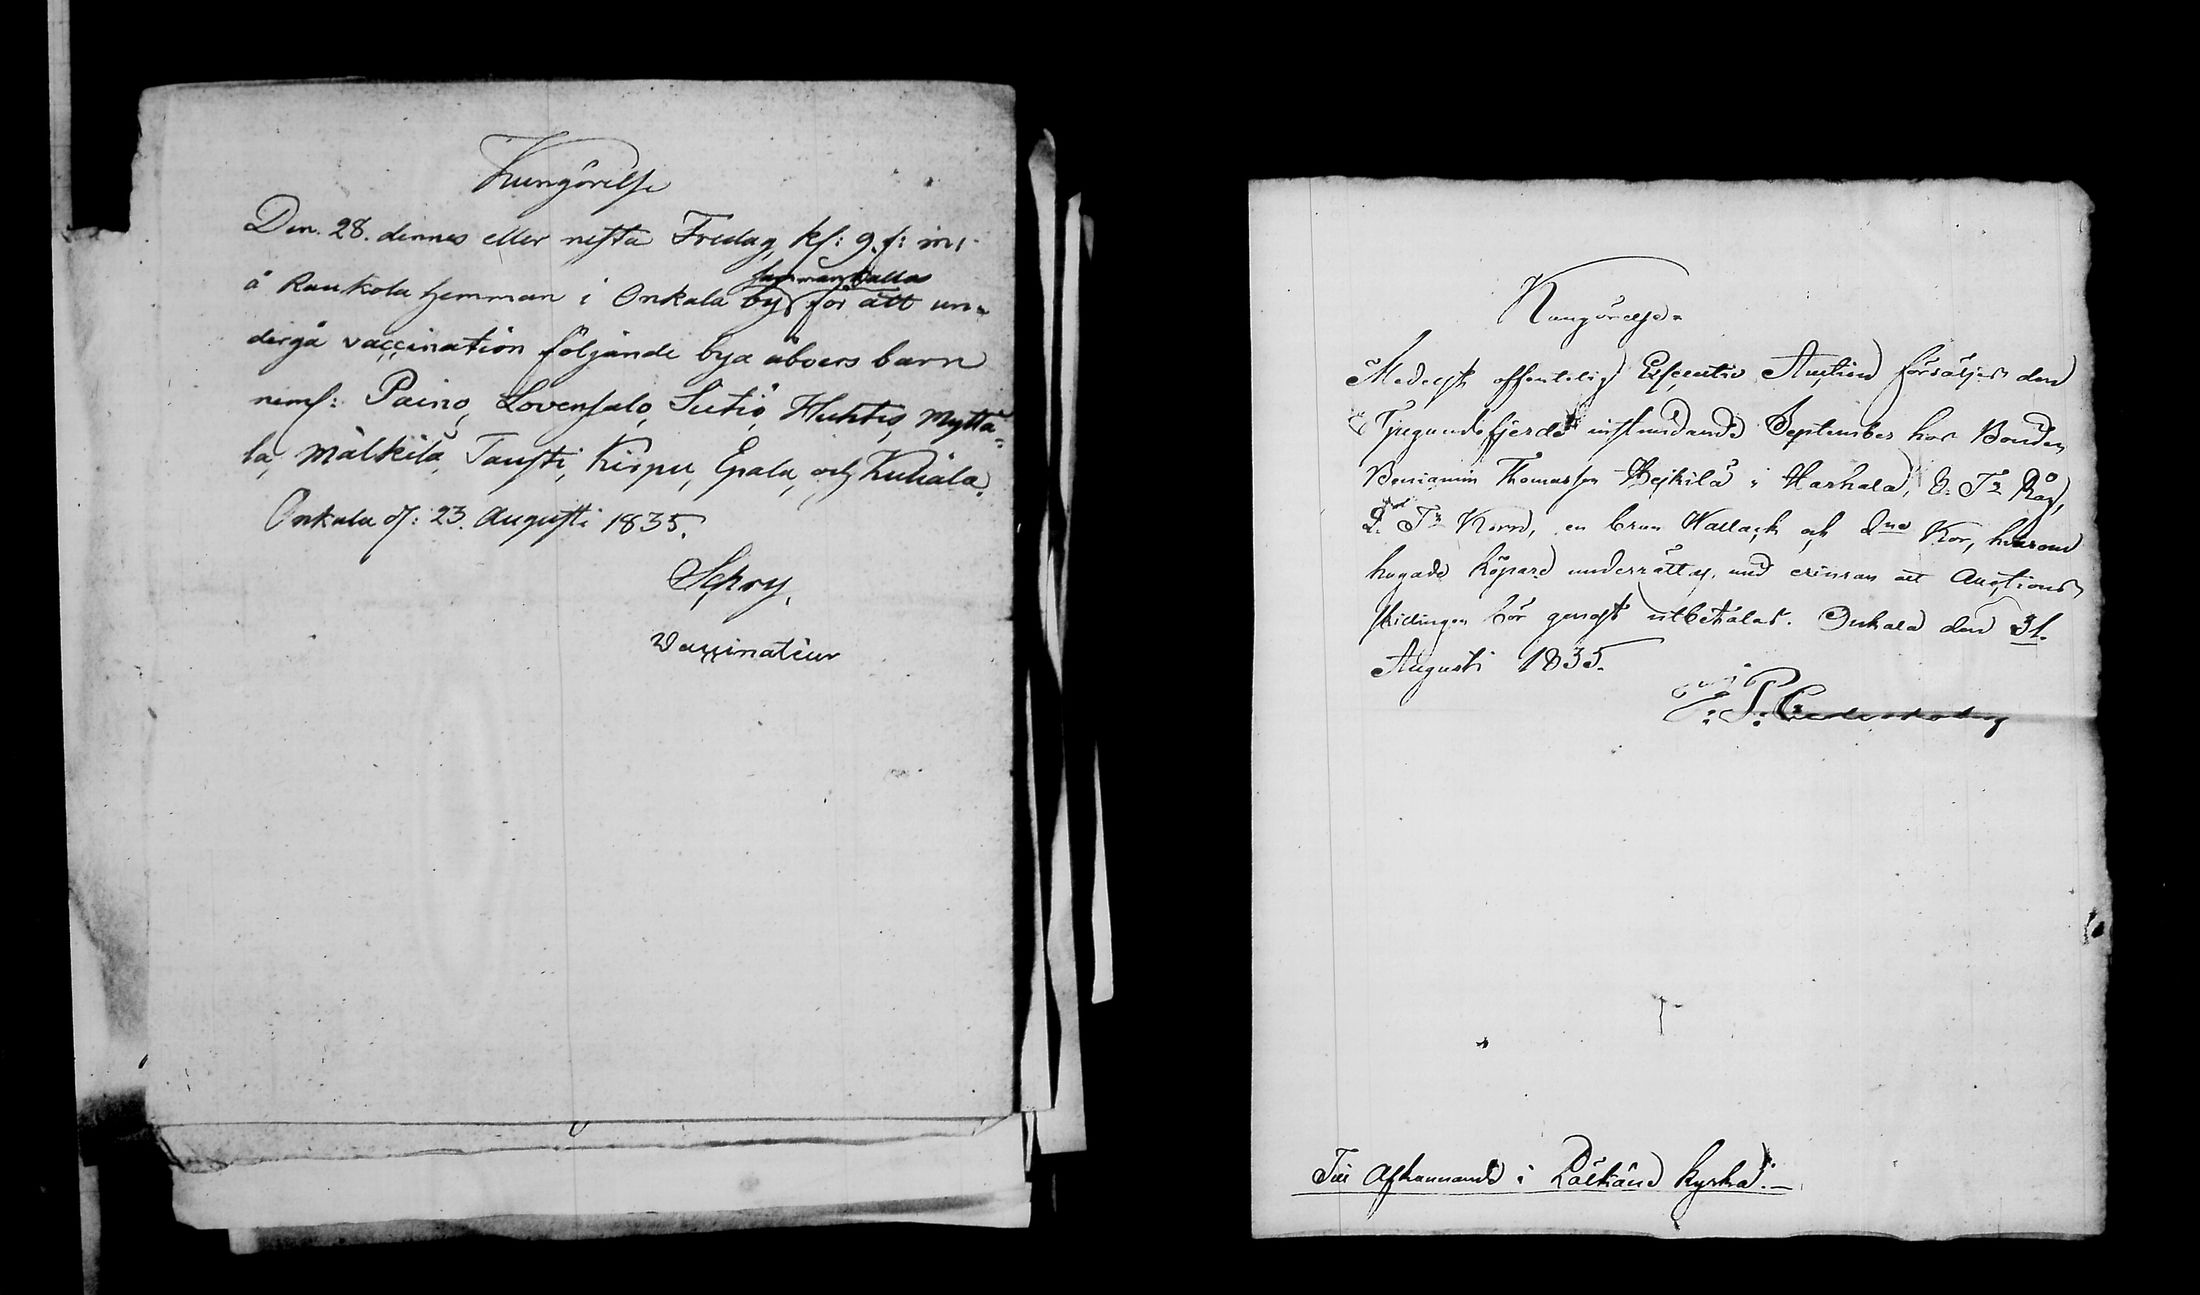 Kungörelse
Den. 28. dennes eller nesta Fredag, kl: 9. f: m:
å Raukola hemman i Onkala by sammankallas för att un-
dergå vaccination följande bya åboers barn
neml: Paino, Lovensalo, Sutio, Huhtis, Myttä-
lä, Mälkilä, Tausti, Kirpu, Epala, och Kuhala.
Onkala d: 23. Augusti 1835.
Schvy,
Vaccinateur
Kungörelse
Medelst offentelig Executiv Auction försäljes den
Tjugundefjerde instundande September hos Bonden
Beniamin Thomasson Heikilä i Harhala, 6. Tr Råg,
2. Tr Korn, en brun Wallack och 2ne Kor, hvarom
hugade köpare underrättas, med erinran att Auctions
skillingen bör genast utbetalas. Onkala den 31.
Augusti 1835.
Till Afkunnande i Pälkäne Kyrka.